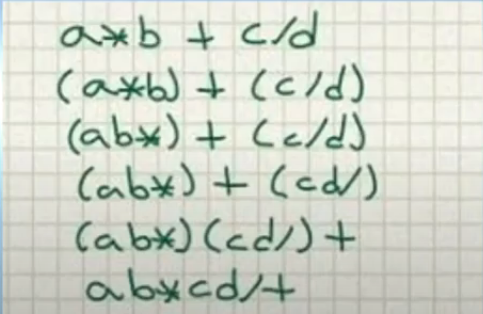 a*b + c/d
(a*b) + (c/d)
(ab*) + (c/d)
(ab*) + (cd/)
(ab*)(cd/)+
ab*cd/+